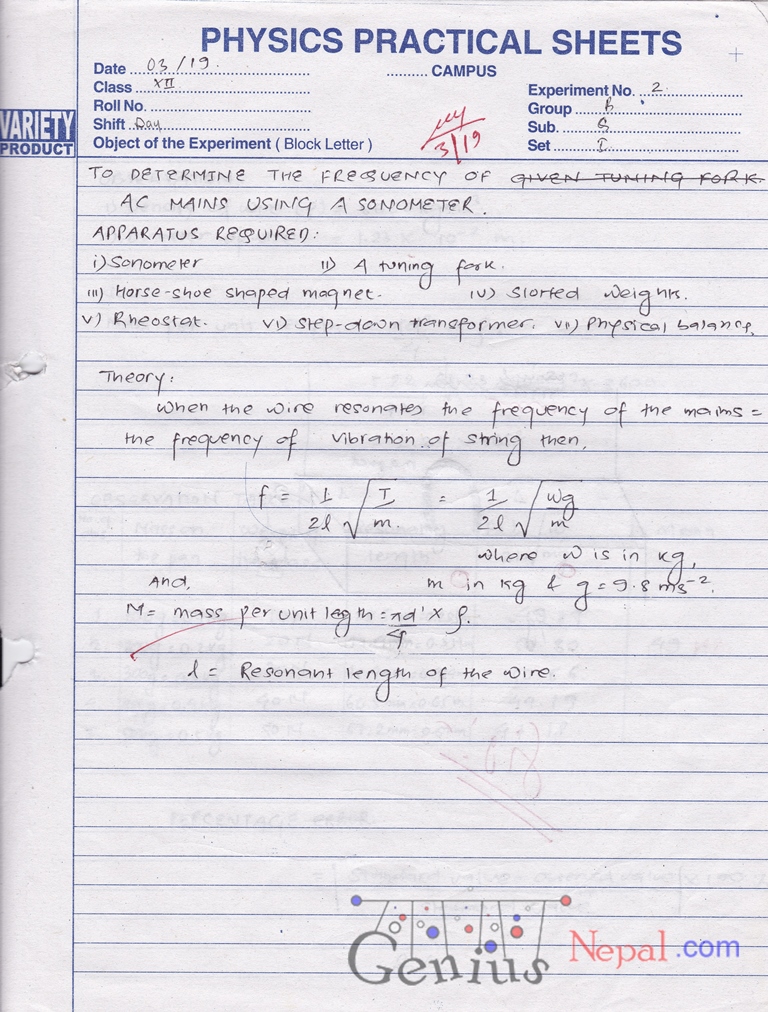 PHYSICS PRACTICAL SHEETS
Date 03/19 ......... CAMPUS
Class XII Experiment No. 2
Roll No. Group B
Shift Day Sub. S
Object of the Experiment ( Block Letter ) Set I
3/19
VARIETY
PRODUCT
TO DETERMINE THE FREQUENCY OF GIVEN TUNING FORK.
AC MAINS USING A SONOMETER.
APPARATUS REQUIRED:
i) Sonometer ii) A tuning fork.
iii) Horse-shoe shaped magnet. iv) Slotted weights.
v) Rheostat. vi) Step-down transformer. vii) Physical balance.
Theory:
When the wire resonates the frequency of the mains =
the frequency of vibration of string then,
f = 1/2l √T/m = 1/2l √wg/m
where w is in kg,
And, m in kg & g = 9.8 ms⁻².
M = mass per unit length = πd'/4 × ρ.
l = Resonant length of the wire.
Genius Nepal.com